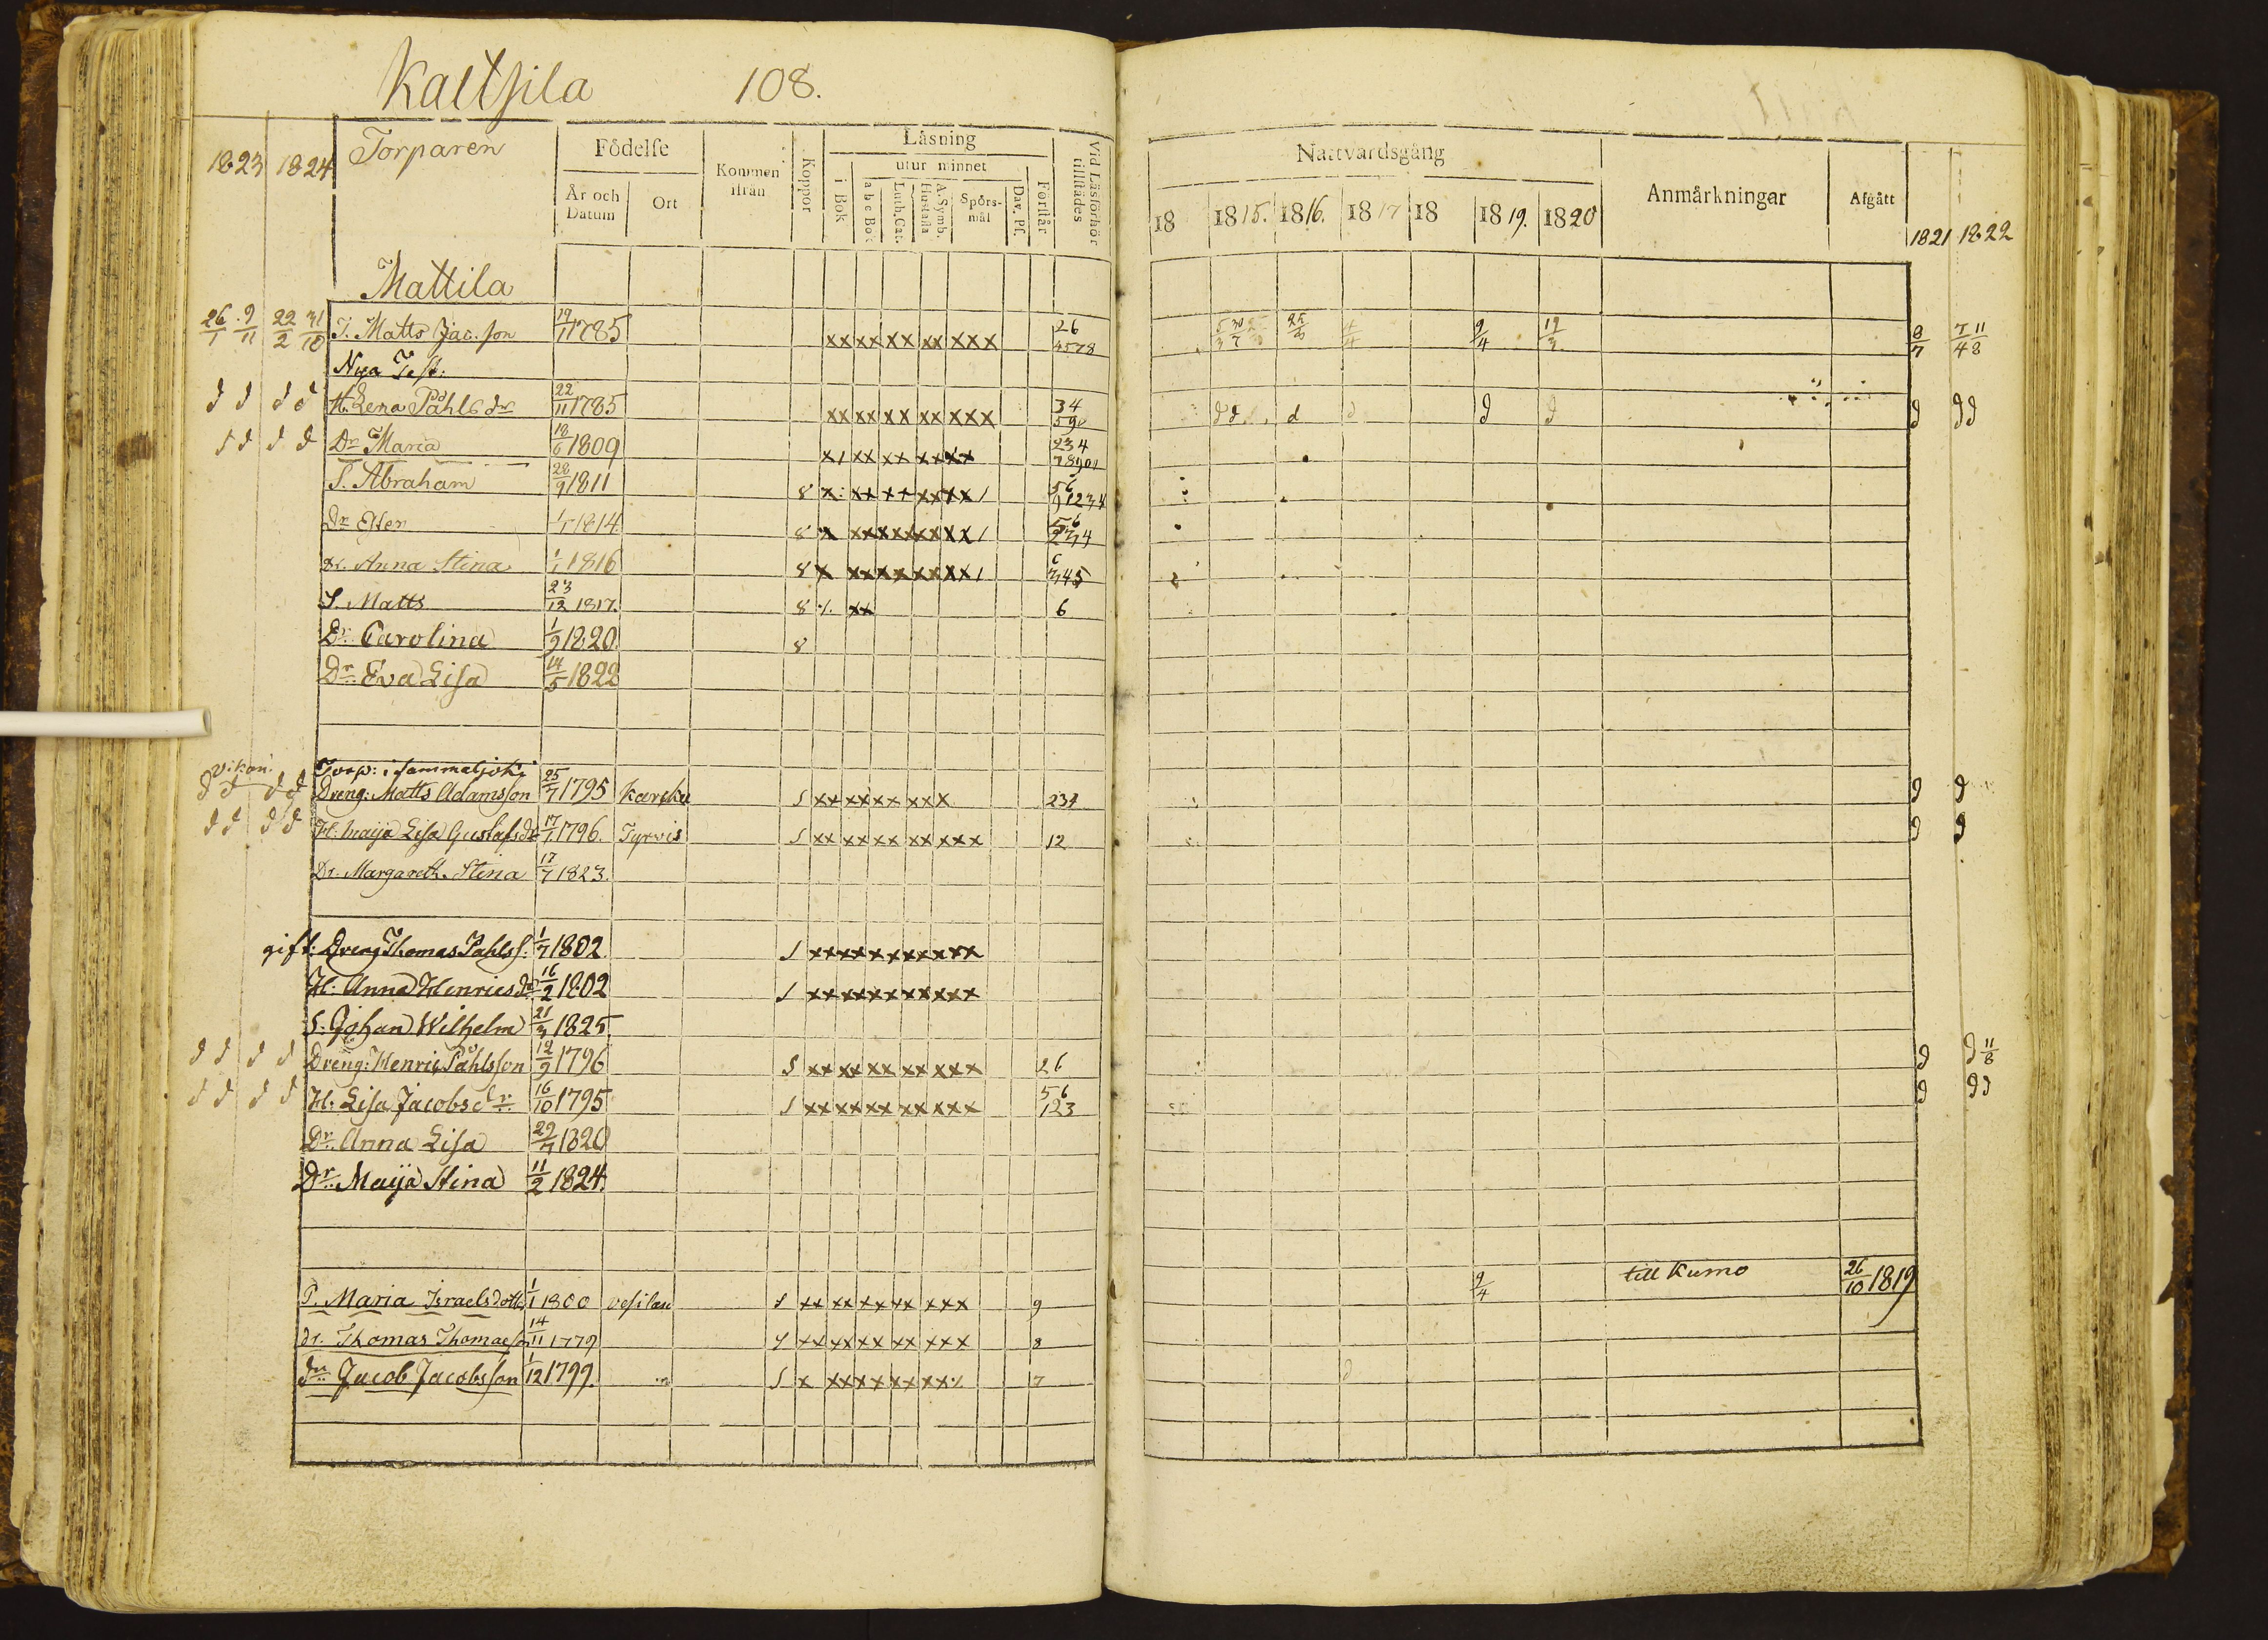 Kaltsila 108.
1823 1824 Torparen Födelse År och Datum Ort Kommen ifrån Koppor Läsning i Bok utur minnet a b c Bok Luth. Cat. A. Symb. Hustafla Spörsmål Dav. Ps. Förstår Vid Läsförhör tillstädes
Nattvardsgång 18 1815. 1816. 1817 18 1819. 1820 Anmärkningar Afgått 1821 1822
Mattila
26/1 9/11 22/2 31/10 T. Matts Jac. son 19/1 1785 xx xx xx xx xxx 26 4578 25/3 4/4 9/4 19/3 8/7 7/4 11/8
Nya Test:
d d d d H. Lena Påhls dr 22/11 1785 xx xx xx xx xxx 34 590 d d d d d d d d d
d d d d Dr Maria 18/6 1809 x/ xx xx xx xx 234 78901
S. Abraham 28/9 1811 8 x xx xx xx xx / 56 91234
Dr Ester 1/1 1814 8 x xx xx xx xx / 56 234
dr. Anna Stina 1/1 1816 8 x xx xx xx xx / 6 345
S. Matts 23/12 1817. 8 ٪ xx 6
Dr. Carolina 1/9 1820. 8
Dr. Eva Lisa 14/5 1822
Torp: i Sammaljoki
d d d d Dreng: Matts Adamsson 25/7 1795 Karcku s xx xx xx xx x 234 d d
d d d d H. Maija Lisa Gustafsdr 17/1 1796. Tyrvis s xx xx xx xx xxx 12 d d
Dr. Margareth. Stina 17/7 1823.
gift: Dreng Thomas Påhlss. 1/7 1802. s xx xx xx xx xxx
H: Anna Henricsdr 16/2 1802 s xx xx xx xx xxx
S: Johan Wilhelm 21/3 1825
d d d d Dreng: Henric Påhlsson 12/9 1796 s xx xx xx xx xxx 26 d d 11/8
d d d d H. Lisa Jacobsdr. 16/10 1795 s xx xx xx xx xxx 56 123 d d d
Dr. Anna Lisa 29/7 1820
Dr. Maija Stina 11/2 1824.
P. Maria Israelsdotter 1/1 1800 vesilax s xx xx xx xx xxx 9 9/4 till Kumo 26/10 1819
dr. Thomas Thomasson 14/11 1779 s xx xx xx xx xxx 8
dr. Jacob Jacobsson 1/12 1799. s x xx xx xx xx 7 d